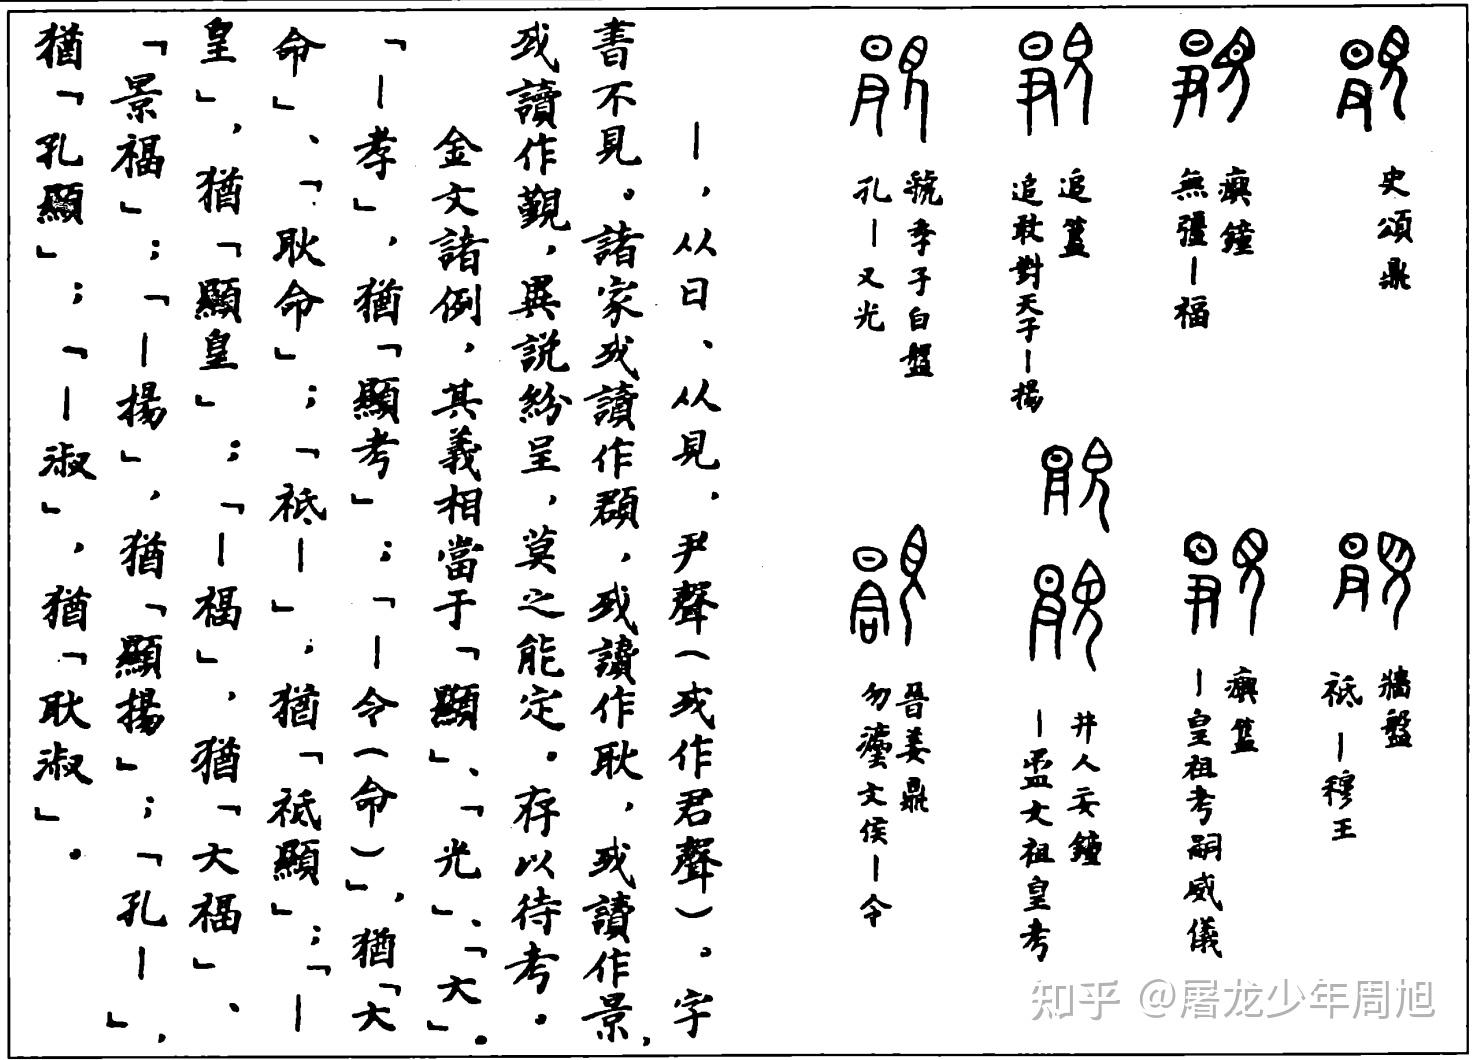 史頌鼎
牆盤
祗丨穆王
𤼈鐘
無彊丨福
𤼈簋
丨皇祖考嗣威儀
追簋
追敢對天子丨揚
井人妄鐘
丨盄文祖皇考
虢季子白盤
孔丨又光
晉姜鼎
勿灋文侯丨令
丨，从日、从見，尹聲（或作君聲）。字
書不見。諸家或讀作頵，或讀作耿，或讀作景，
或讀作覲，異説紛呈，莫之能定。存以待考。
金文諸例，其義相當于「顯」、「光」、「大」。
「丨孝」，猶「顯考」；「丨令（命）」，猶「大
命」、「耿命」；「祗丨」，猶「祗顯」；「丨
皇」，猶「顯皇」；「丨福」，猶「大福」、
「景福」；「丨揚」，猶「顯揚」；「孔丨」，
猶「孔顯」；「丨淑」，猶「耿淑」。
知乎 @屠龙少年周旭